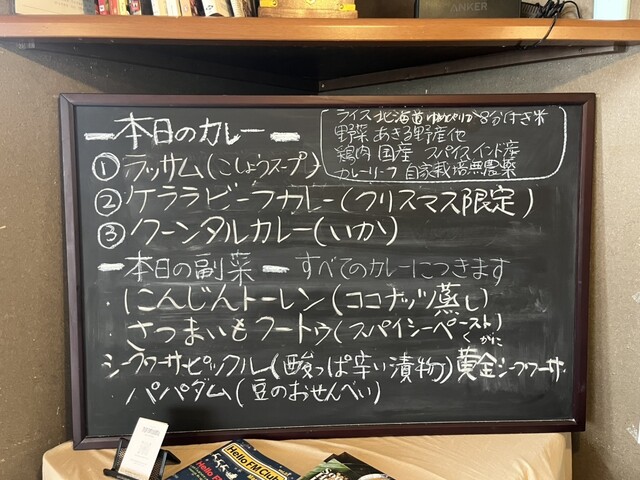 ANKER
ー本日のカレーー
① ラッサム(こしょうスープ)
② ケララビーフカレー(クリスマス限定)
③ クーンタルカレー(いか)
ライス北海道ゆめぴりか8分づき米
野菜 あきる野産他
鶏肉 国産 スパイスインド産
カレーリーフ 自家栽培無農薬
ー本日の副菜ー すべてのカレーにつきます
・にんじんトーレン(ココナッツ蒸し)
・さつまいもクートゥ(スパイシーペースト)
シークワーサーピックル(酸っぱ辛い漬物)黄金シークワーサー
くがに
・パパダム(豆のおせんべい)
Hello FM Club
Hello FM